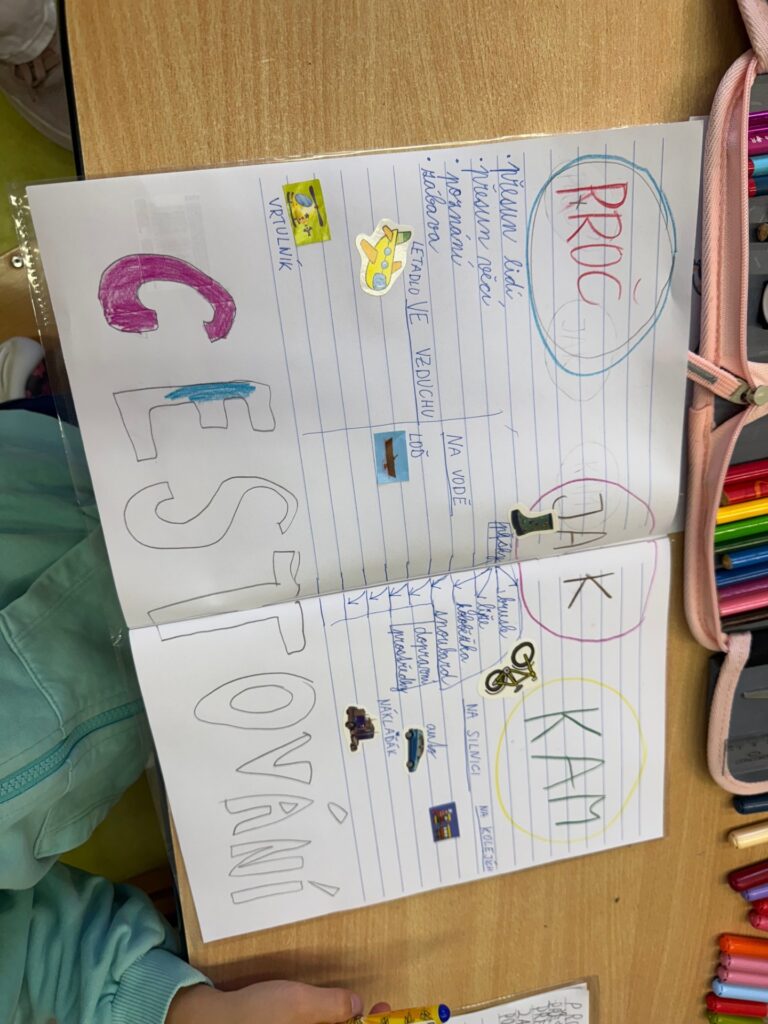 PROČ
JAK
KAM
· přesun lidí,
· přesun věcí
· poznání,
· zábava
pěšky
brusle
lyže
koloběžka
snowboard
dopravní
prostředky
VE VZDUCHU
NA VODĚ
NA SILNICI
NA KOLEJÍCH
LETADLO
LOĎ
auto
NÁKLAĎÁK
VRTULNÍK
CESTOVÁNÍ